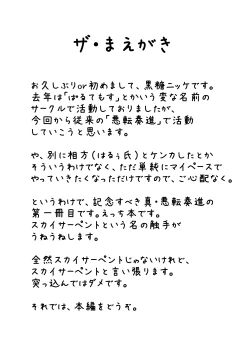 ザ・まえがき
お久しぶりor初めまして、黒糖ニッケです。
去年は「ぱるてもす」とかいう変な名前の
サークルで活動しておりましたが、
今回から従来の「悪転奏進」で活動
していこうと思います。
や、別に相方(はるぅ氏)とケンカしたとか
そういうわけでなく、ただ単純にマイペースで
やっていきたくなっただけですので、ご心配なく。
というわけで、記念すべき真・悪転奏進の
第一冊目です。えっち本です。
スカイサーペントという名の触手が
うねうねします。
全然スカイサーペントじゃないけれど、
スカイサーペントと言い張ります。
突っ込んではダメです。
それでは、本編をどうぞ。